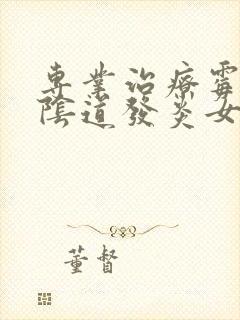 專業治療霉
陰道發炎女
董督